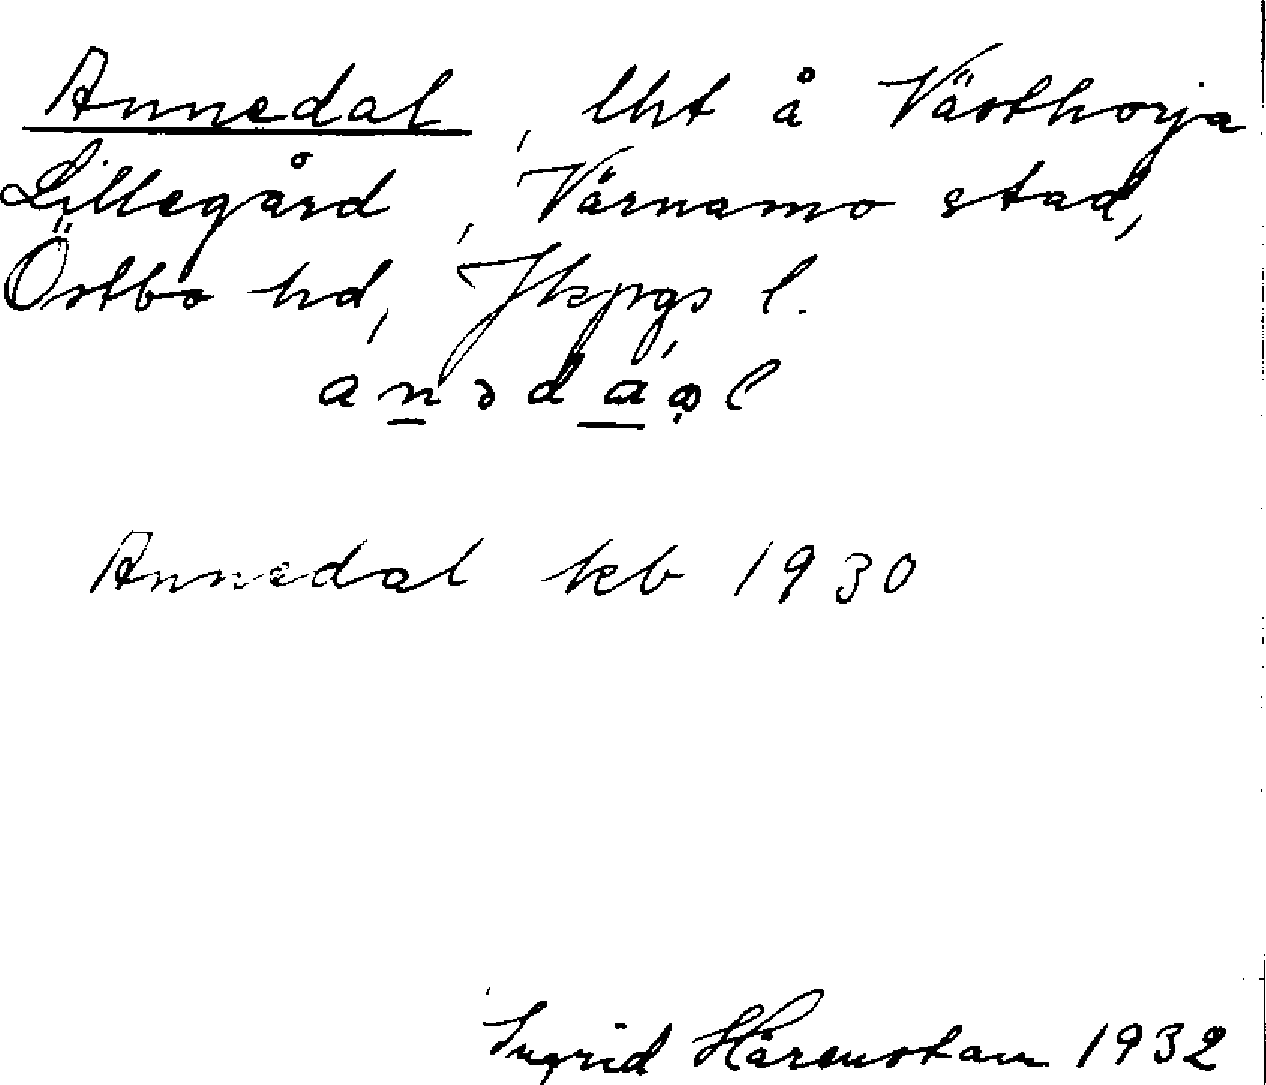 Annedal, lht å Västhorja
Lillegård, Värnamo stad,
Östbo hd, Jkpgs l.
Annedal kb 1930
Ingrid Härenstam 1932